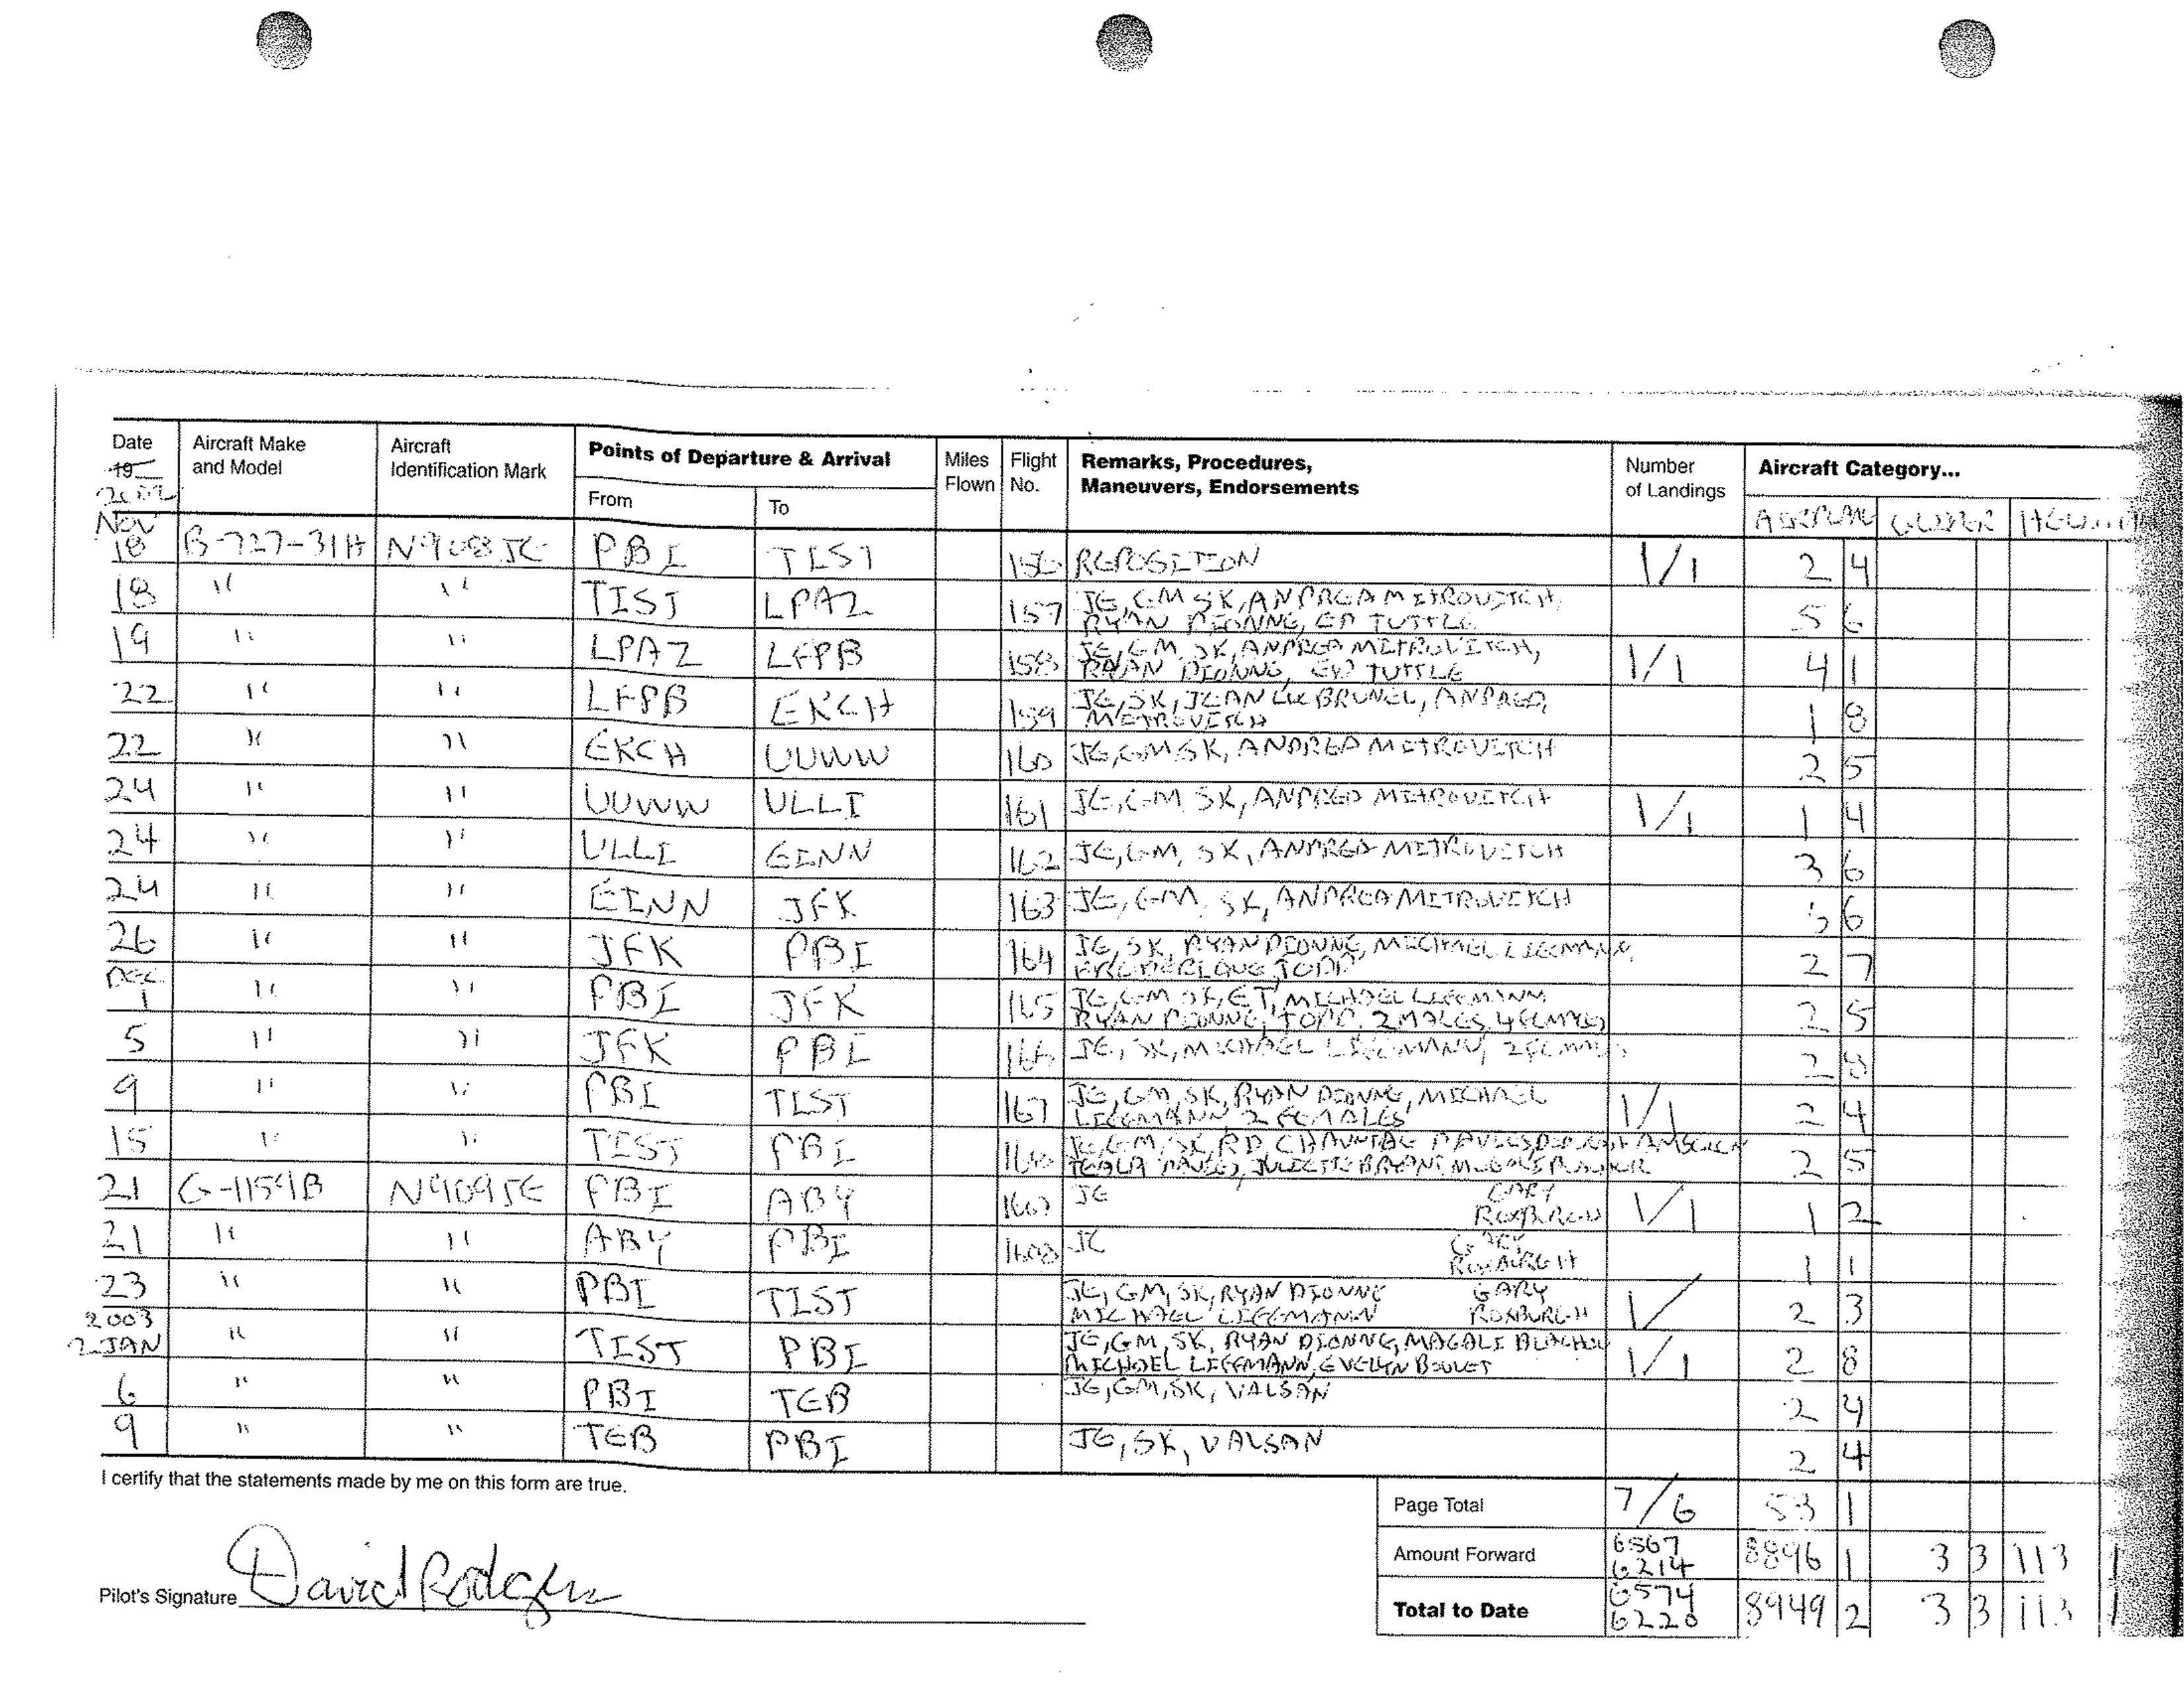 Date Aircraft Make Aircraft Points of Departure & Arrival Miles Flight Remarks, Procedures, Number Aircraft Category...
19 and Model Identification Mark Flown No. Maneuvers, Endorsements of Landings
2002 From To AIRPLANE GLIDER
NOV
18 B-727-31H N908JE PBI TIST 156 REPOSITION 1/1 2 4
18 " " TIST LPAZ 157 JE, GM SK, ANDREA MITROVITCH,
RYAN DIONNE, ED TUTTLE 5 6
19 " " LPAZ LFPB 158 JE, GM, SK, ANDREA MITROVITCH,
RYAN DIONNE, ED TUTTLE 1/1 4 1
22 " " LFPB EKCH 159 JE, SK, JEAN LUC BRUNEL, ANDREA,
METROVITCH 1 8
22 " " EKCH UUWW 160 JE, GM SK, ANDREA METROVITCH 2 5
24 " " UUWW ULLI 161 JE, GM SK, ANDREA METROVITCH 1/1 1 4
24 " " ULLI EINN 162 JE, GM, SK, ANDREA METROVITCH 3 6
24 " " EINN JFK 163 JE, GM, SK, ANDREA METROVITCH 6
26 " " JFK PBI 164 JE, SK, RYAN DIONNE, MICHAEL LIFFMANN,
TODD 2 7
DEC
1 " " PBI JFK 165 JE, GM SK, ET, MICHAEL LIFFMANN
RYAN DIONNE, TODD, 2 MALES, 4 FEMALES 2 5
5 " " JFK PBI 166 JE, SK, MICHAEL LIFFMANN, 2 FEMALES 2 8
9 " " PBI TIST 167 JE, GM, SK, RYAN DIONNE, MICHAEL
LIFFMANN, 2 FEMALES 1/1 2 4
15 " " TIST PBI 168 JE, GM, SK, RD, CHAUNTAE DAVIES,
TEALA DAVIES, JULIETTE BRYANT, 2 5
21 G-1159B N909JE PBI ABY 1607 JE GARY
ROXBURGH 1/1 1 2
21 " " ABY PBI 1608 JE GARY
ROXBURGH 1 1
23 " " PBI TIST JE, GM, SK, RYAN DIONNE GARY
MICHAEL LIFFMANN ROXBURGH 1/ 2 3
2003
2 JAN " " TIST PBI JE, GM, SK, RYAN DIONNE, MAGALE BLACHOU
MICHAEL LIFFMANN, EVELYN BOULET 1/1 2 8
6 " " PBI TEB JE, GM, SK, VALSAN 2 4
9 " " TEB PBI JE, SK, VALSAN 2 4
I certify that the statements made by me on this form are true.
Page Total 7/6 53 1
Amount Forward 6567 6214 8896 1 3 3 113 1
Pilot's Signature David Rodgers
Total to Date 6574 6220 8949 2 3 3 113 1